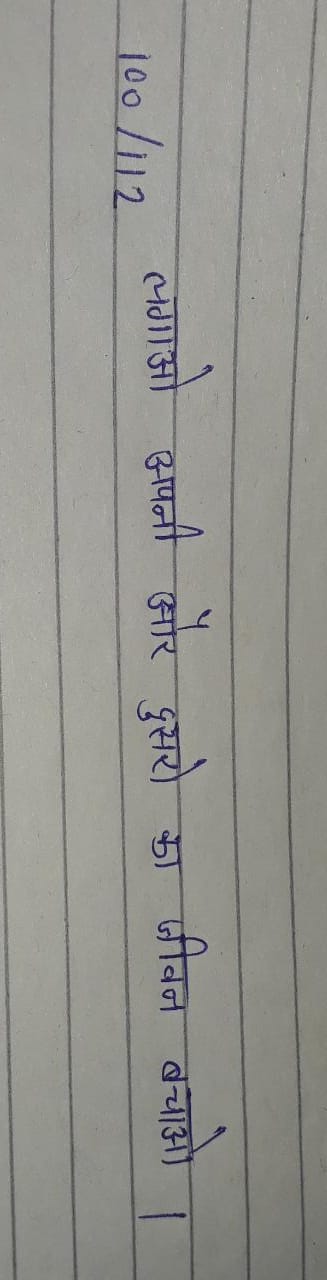 100/112 लगाओ अपनी और दुसरो का जीवन बचाओ ।